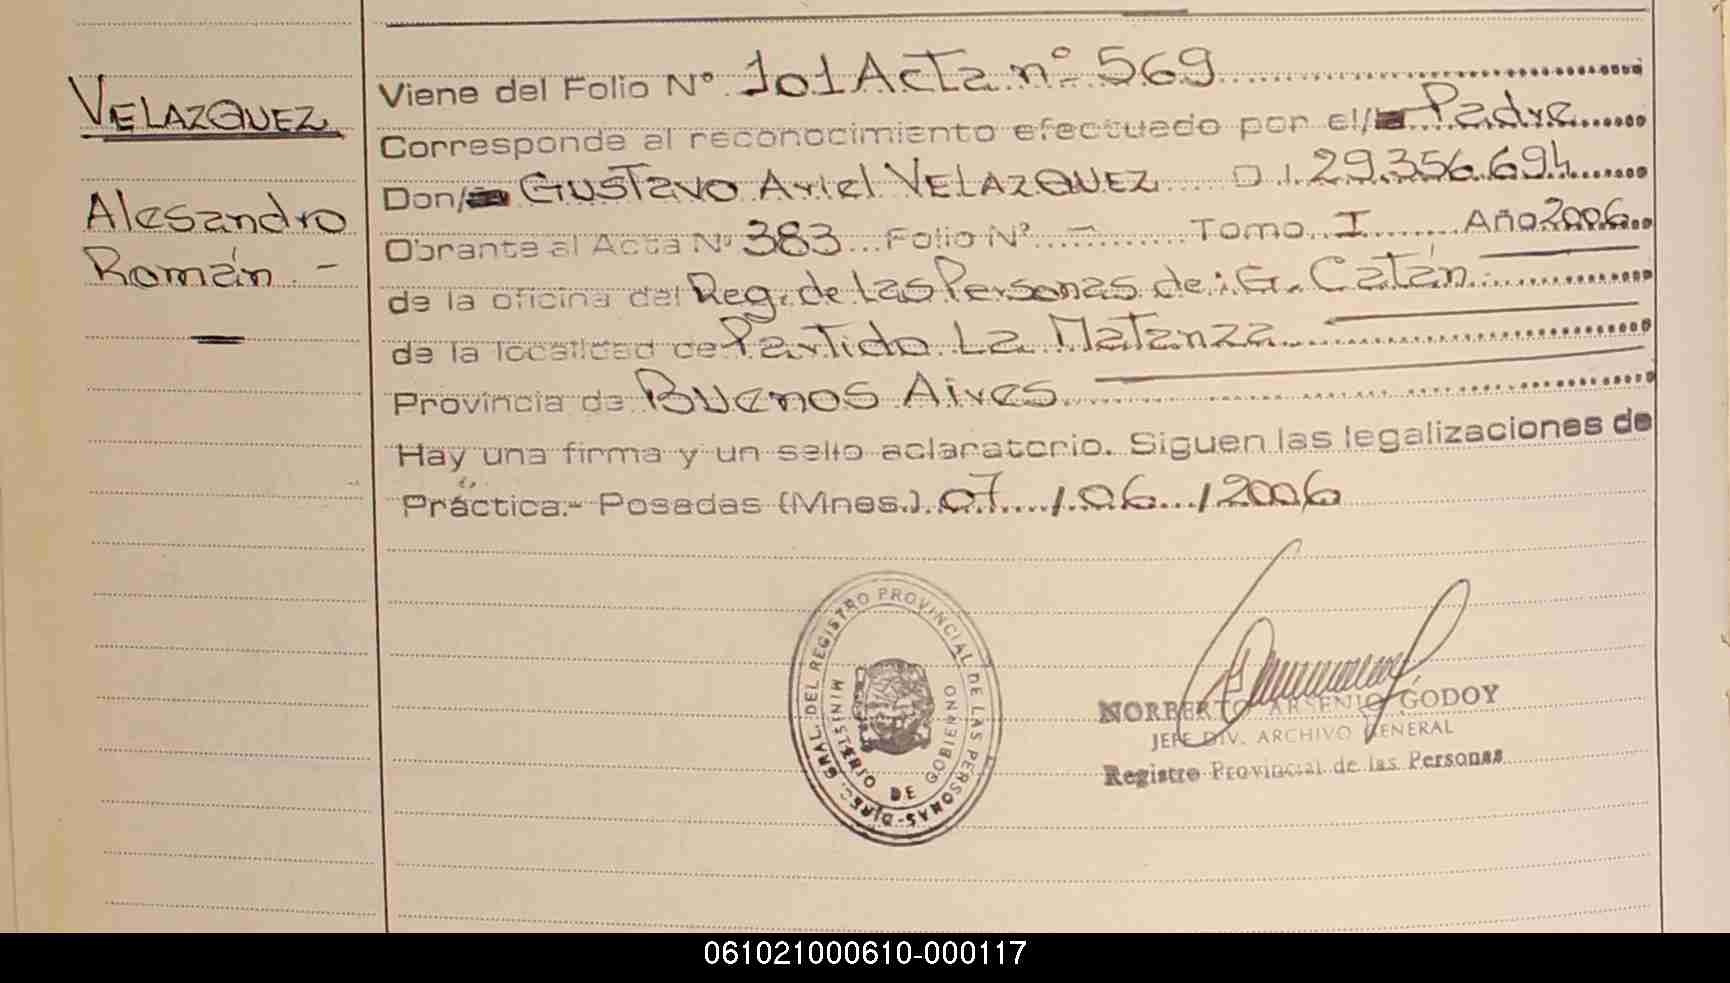 VELAZQUEZ
Alesandro
Román. -
Viene del Folio N° 101 Acta n° 569
Corresponde al reconocimiento efectuado por el/ Padre
Don/ Gustavo Ariel VELAZQUEZ D.I. 29.356.694
Obrante al Acta N° 383 Folio N° - Tomo I Año 2006
de la oficina del Reg. de las Personas de: G. Catán
de la localidad de Partido La Matanza
Provincia de Buenos Aires
Hay una firma y un sello aclaratorio. Siguen las legalizaciones de
Práctica.- Posadas (Mnes.) 07 / 06 / 2006
DIREC. GRAL. DEL REGISTRO PROVINCIAL DE LAS PERSONAS-
MINISTERIO DE GOBIERNO
NORBERTO ARSENIO GODOY
JEFE DIV. ARCHIVO GENERAL
Registro Provincial de las Personas
061021000610-000117